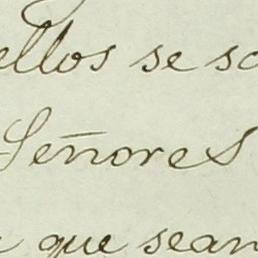 ellos se so
Señores
que sean